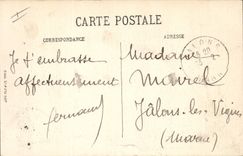 CARTE POSTALE
CORRESPONDANCE
ADRESSE
Je t'embrasse
affectueusement
Fernand
Madame
Jâlons-les-Vignes
(Marne)